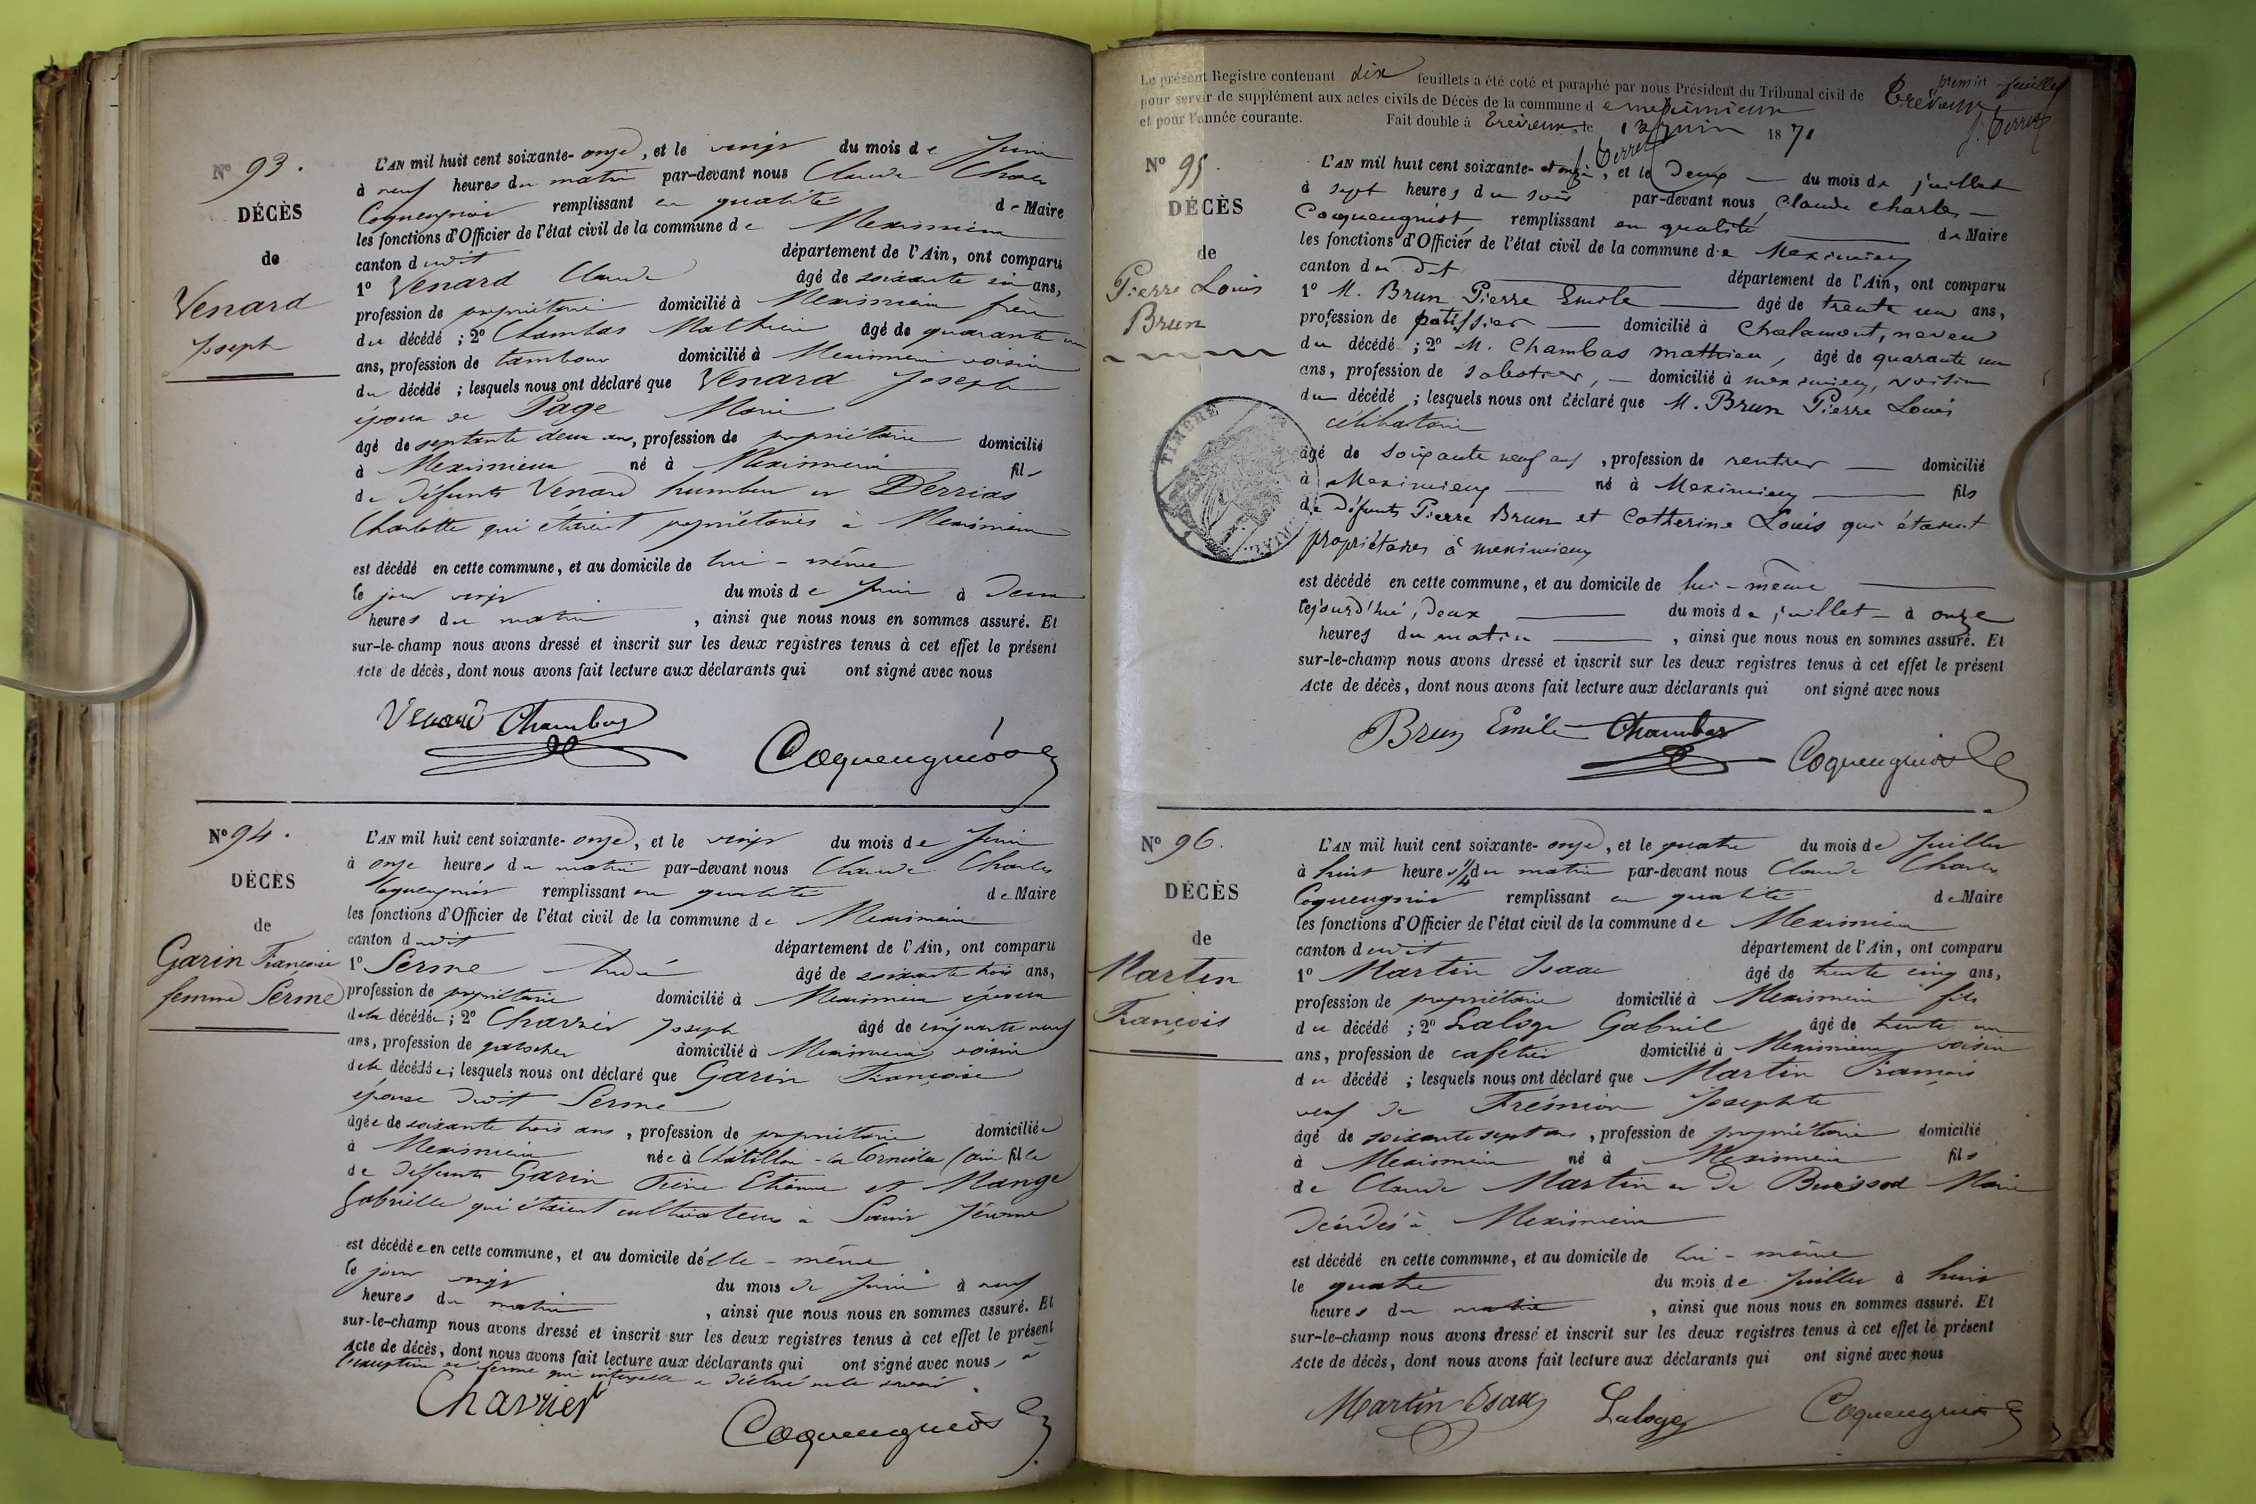 N° 93.
DÉCÈS
de
Venard
Joseph
L'AN mil huit cent soixante-onze, et le vingt du mois de Juin
à neuf heures du matin par-devant nous Claude Charles
Coquengniot remplissant en qualité de Maire
les fonctions d'Officier de l'état civil de la commune de Meximieux
canton dudit département de l'Ain, ont comparu
1° Venard Claude âgé de soixante six ans,
profession de propriétaire domicilié à Meximieux frère
du décédé ; 2° Chambas Mathieu âgé de quarante un
ans, profession de tambour domicilié à Meximieux voisin
du décédé ; lesquels nous ont déclaré que Venard Joseph
époux de Page Marie
âgé de septante deux ans, profession de propriétaire domicilié
à Meximieux né à Meximieux fils
de défunts Venard humbert et Derrias
Charlotte qui étaient propriétaires à Meximieux
est décédé en cette commune, et au domicile de lui-même
le jour vingt du mois de Juin à Deux
heures du matin, ainsi que nous nous en sommes assuré. Et
sur-le-champ nous avons dressé et inscrit sur les deux registres tenus à cet effet le présent
Acte de décès, dont nous avons fait lecture aux déclarants qui ont signé avec nous
Venard Chambas
Coquengniot
N° 94.
DÉCÈS
de
Garin Françoise
femme Serme
L'AN mil huit cent soixante-onze, et le vingt du mois de Juin
à onze heures du matin par-devant nous Claude Charles
Coquengniot remplissant en qualité de Maire
les fonctions d'Officier de l'état civil de la commune de Meximieux
canton dudit département de l'Ain, ont comparu
1° Serme André âgé de soixante trois ans,
profession de propriétaire domicilié à Meximieux époux
de la décédée ; 2° Charrier Joseph âgé de cinquante neuf
ans, profession de domicilié à Meximieux voisin
de la décédée ; lesquels nous ont déclaré que Garin Françoise
épouse dudit Serme
âgée de soixante trois ans, profession de propriétaire domiciliée
à Meximieux née à Châtillon-la Corneille (ain fille
de défunts Garin Pierre Etienne et Mange
Gabrielle qui étaient cultivateurs à Saint Jérome
est décédée en cette commune, et au domicile d'elle-même
le jour vingt du mois de Juin à neuf
heures du matin, ainsi que nous nous en sommes assuré. Et
sur-le-champ nous avons dressé et inscrit sur les deux registres tenus à cet effet le présent
Acte de décès, dont nous avons fait lecture aux déclarants qui ont signé avec nous, à
l'exception de Serme qui interpellé a déclaré ne le savoir.
Charrier
Coquengniot
Le présent Registre contenant dix feuillets a été coté et paraphé par nous Président du Tribunal civil de Trévoux
pour servir de supplément aux actes civils de Décès de la commune de meximieux
et pour l'année courante. Fait double à Trévoux, le 12 juin 1871
premier feuillet
J. Perret
N° 95.
DÉCÈS
de
Pierre Louis
Brun
L'AN mil huit cent soixante-et onze, et le Deux du mois de juillet
à sept heures du soir par-devant nous Claude Charles
Coquengniot remplissant en qualité de Maire
les fonctions d'Officier de l'état civil de la commune de Meximieux
canton du dit département de l'Ain, ont comparu
1° M. Brun Pierre Emile âgé de trente un ans,
profession de patissier domicilié à Chalamont, neveu
du décédé ; 2° M. Chambas mathieu, âgé de quarante un
ans, profession de sabotier, domicilié à meximieux, voisin
du décédé ; lesquels nous ont déclaré que M. Brun Pierre Louis
célibataire
âgé de soixante neuf ans, profession de rentier domicilié
à Meximieux né à Meximieux fils
de Défunts Pierre Brun et Catherine Louis qui étaient
propriétaires à meximieux
est décédé en cette commune, et au domicile de lui-même
le jourd'hui, deux du mois de juillet à onze
heures du matin, ainsi que nous nous en sommes assuré. Et
sur-le-champ nous avons dressé et inscrit sur les deux registres tenus à cet effet le présent
Acte de décès, dont nous avons fait lecture aux déclarants qui ont signé avec nous
TIMBRE
Brun Emile Chambas Coquengniot
N° 96.
DÉCÈS
de
Martin
François
L'AN mil huit cent soixante-onze, et le quatre du mois de Juillet
à huit heures 1/4 du matin par-devant nous Claude Charles
Coquengniot remplissant en qualité de Maire
les fonctions d'Officier de l'état civil de la commune de Meximieux
canton dudit département de l'Ain, ont comparu
1° Martin Isaac âgé de trente cinq ans,
profession de propriétaire domicilié à Meximieux fils
du décédé ; 2° Laloge Gabriel âgé de trente un
ans, profession de cafetier domicilié à Meximieux voisin
du décédé ; lesquels nous ont déclaré que Martin François
veuf de Frémion Josephte
âgé de soixante sept ans, profession de propriétaire domicilié
à Meximieux né à Meximieux fils
de Claude Martin et de Buisson Marie
décédés à Meximieux
est décédé en cette commune, et au domicile de lui-même
le quatre du mois de Juillet à huit
heures du matin, ainsi que nous nous en sommes assuré. Et
sur-le-champ nous avons dressé et inscrit sur les deux registres tenus à cet effet le présent
Acte de décès, dont nous avons fait lecture aux déclarants qui ont signé avec nous
Martin Isaac Laloge Coquengniot